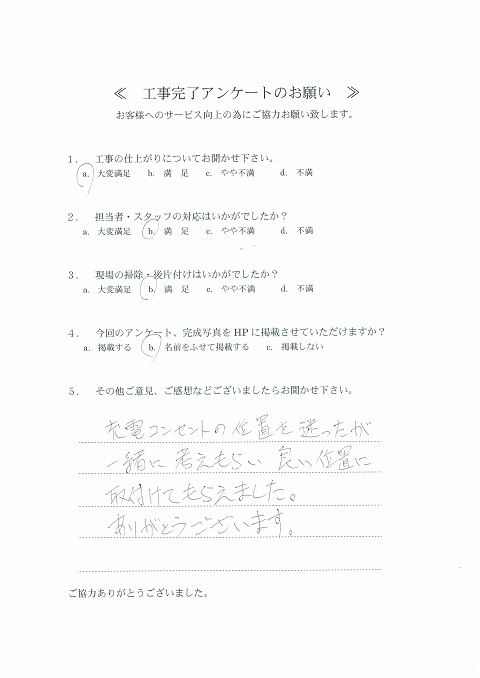 ≪ 工事完了アンケートのお願い ≫
お客様へのサービス向上の為にご協力お願い致します。
1． 工事の仕上がりについてお聞かせ下さい。
a. 大変満足 b. 満 足 c. やや不満 d. 不満
2． 担当者・スタッフの対応はいかがでしたか？
a. 大変満足 b. 満 足 c. やや不満 d. 不満
3． 現場の掃除・後片付けはいかがでしたか？
a. 大変満足 b. 満 足 c. やや不満 d. 不満
4． 今回のアンケート、完成写真をHPに掲載させていただけますか？
a. 掲載する b. 名前をふせて掲載する c. 掲載しない
5． その他ご意見、ご感想などございましたらお聞かせ下さい。
充電コンセントの位置を迷ったが
一緒に考えもらい良い位置に
取付けてもらえました。
ありがとうございます。
ご協力ありがとうございました。